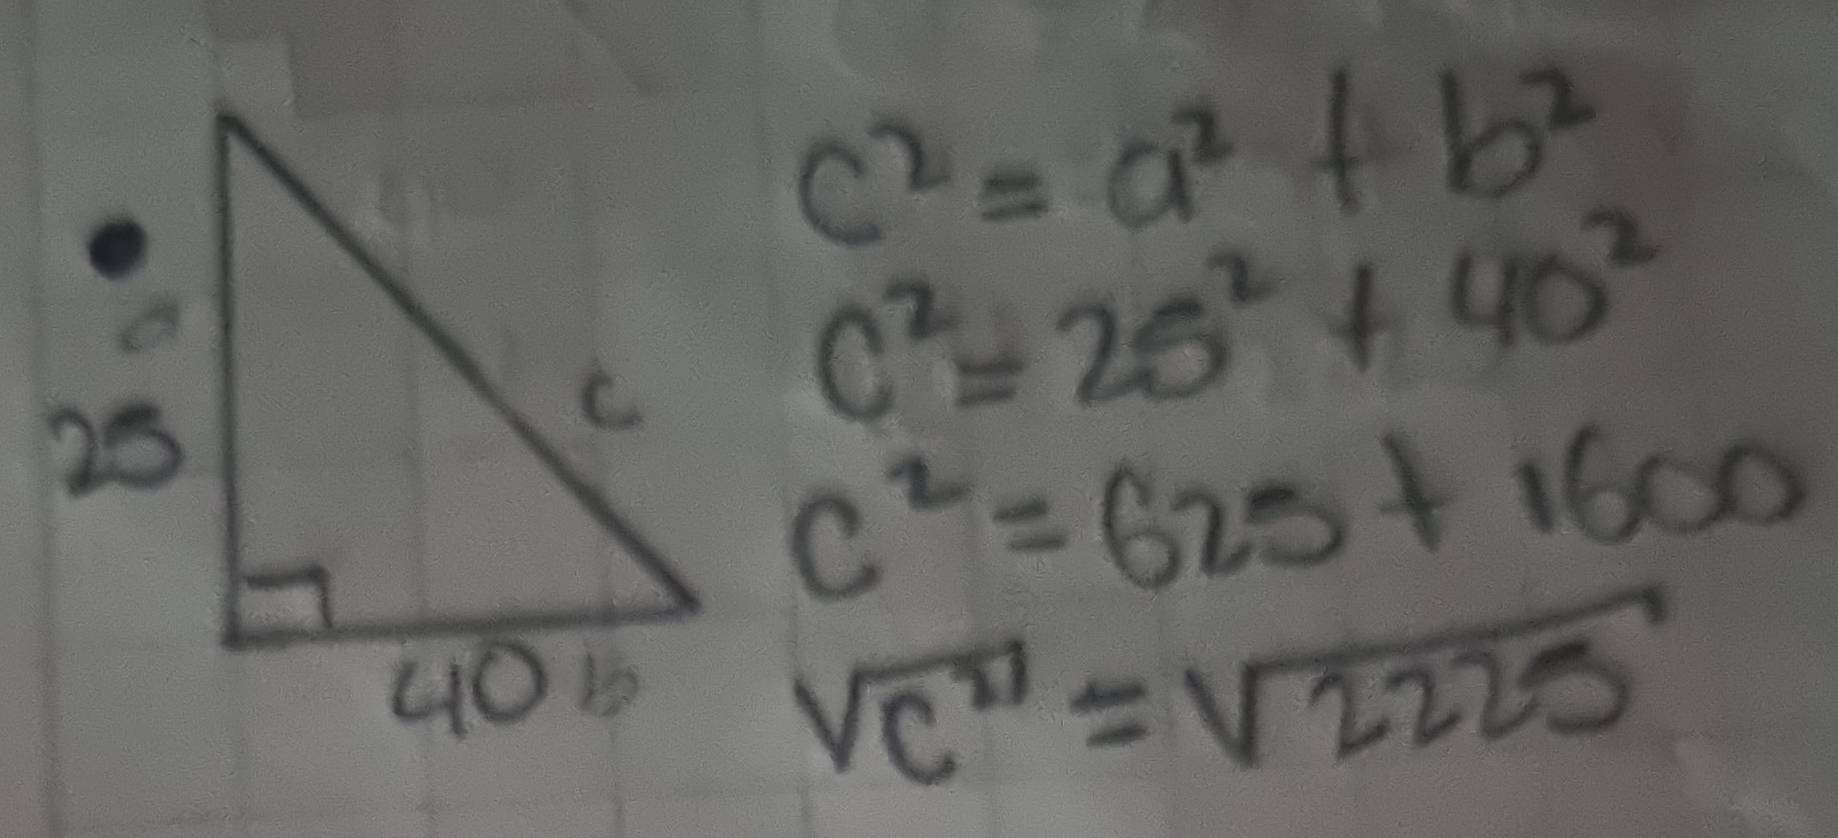 a
25
c
40 b
c² = a² + b²
c² = 25² + 40²
c² = 625 + 1600
√c² = √2225